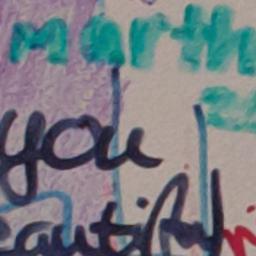 marth
you
eautiful